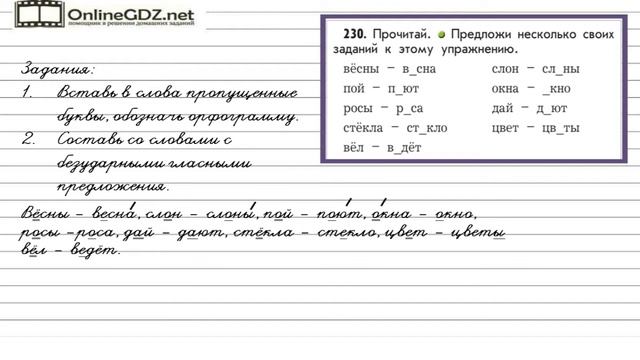 OnlineGDZ.net
помощник в решении домашних заданий
230. Прочитай. Предложи несколько своих
заданий к этому упражнению.
вёсны – в_сна слон – сл_ны
пой – п_ют окна – _кно
росы – р_са дай – д_ют
стёкла – ст_кло цвет – цв_ты
вёл – в_дёт
Задания:
1. Вставь в слова пропущенные
буквы, обозначь орфограмму.
2. Составь со словами с
безударными гласными
предложения.
Вёсны – весна́, слон – слоны́, пой – пою́т, о́кна – окно,
росы –роса, дай – дают, стёкла – стекло, цвет – цветы
вёл – ведёт.